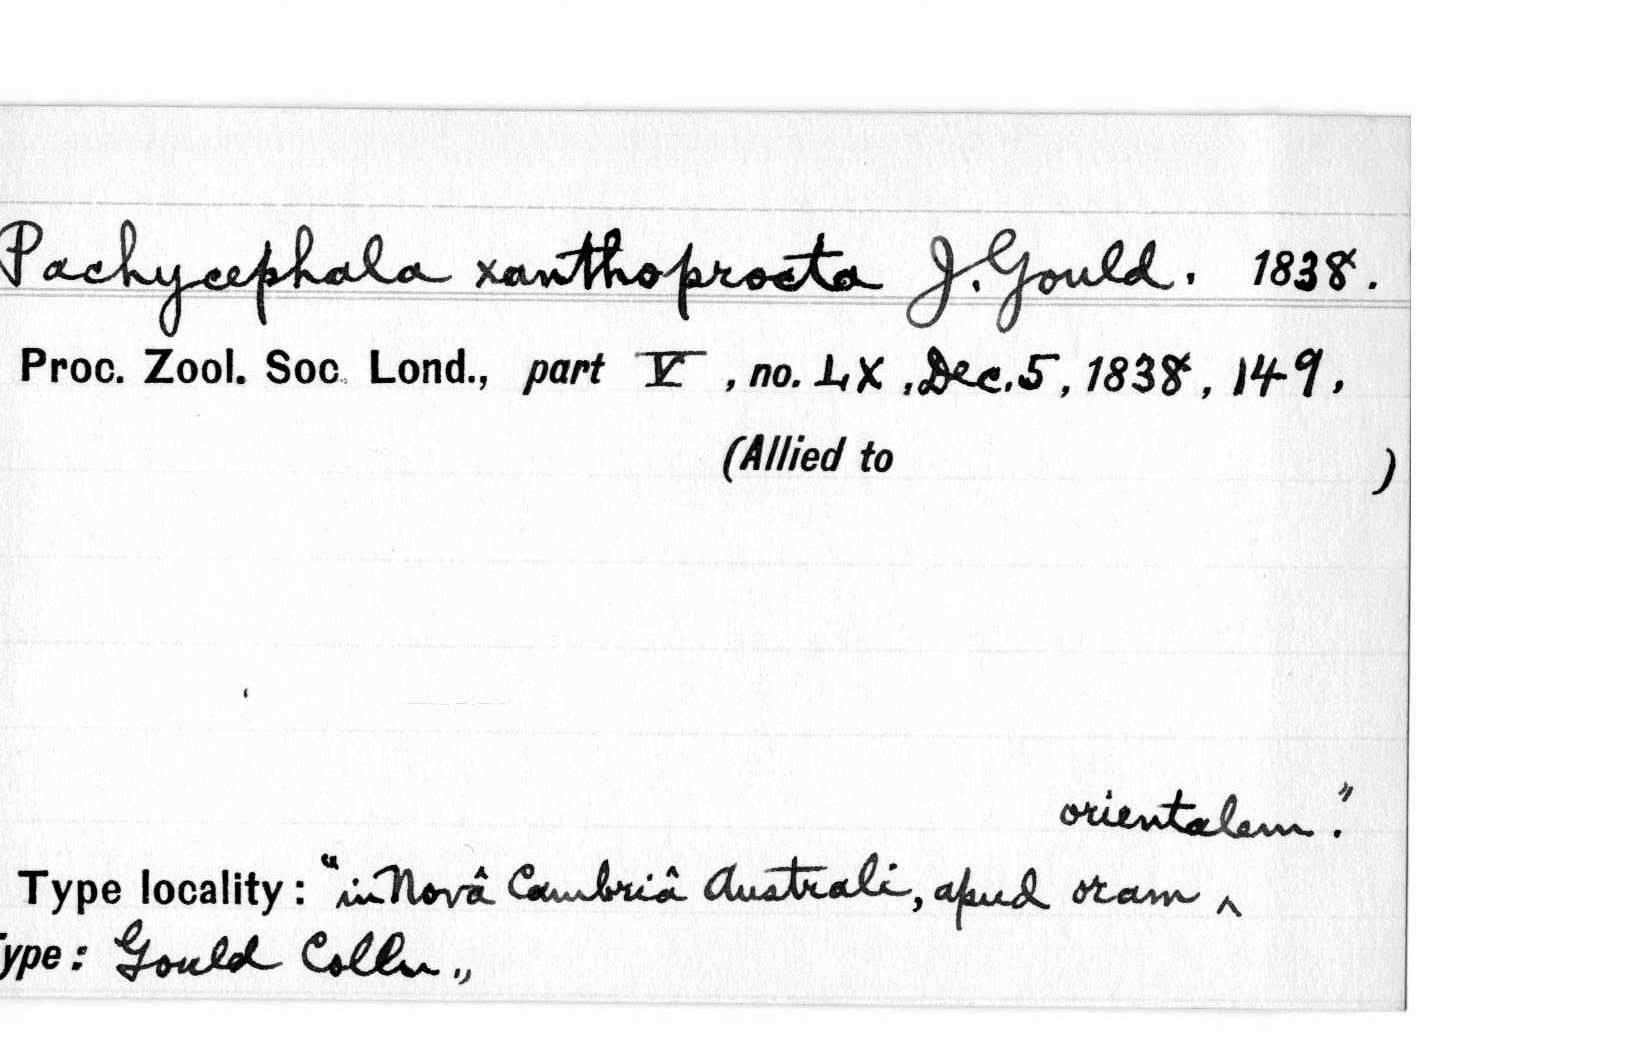 Pachycephala xanthoprocta J. Gould. 1838.
Proc. Zool. Soc. Lond., part V, no. LX, Dec. 5, 1838, 149.
(Allied to )
orientalem."
Type locality: "in Novâ Cambriâ Australi, apud oram ^
Type: Gould Colln.,,